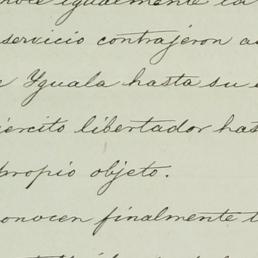 noce igualmente la
servicio contrajeron a
Yguala hasta su
ército libertador has
propio objeto.
onocen finalmente